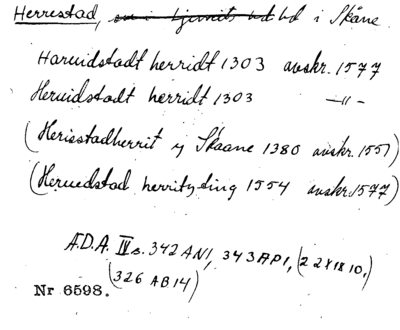 Herrestad, i Skåne.
Haruidstadt herridt 1303 avskr. 1577
Heruidstadt herridt 1303 —"—
(Herisstadherrit y Skaane 1380 avskr. 1551)
(Heruedstad herritz ding 1554 avskr. 1577)
Æ.D.A. IV s. 342 AN1, 343 AP1, (2 2 X 18 10,)
(326 AB14)
Nr 6598.